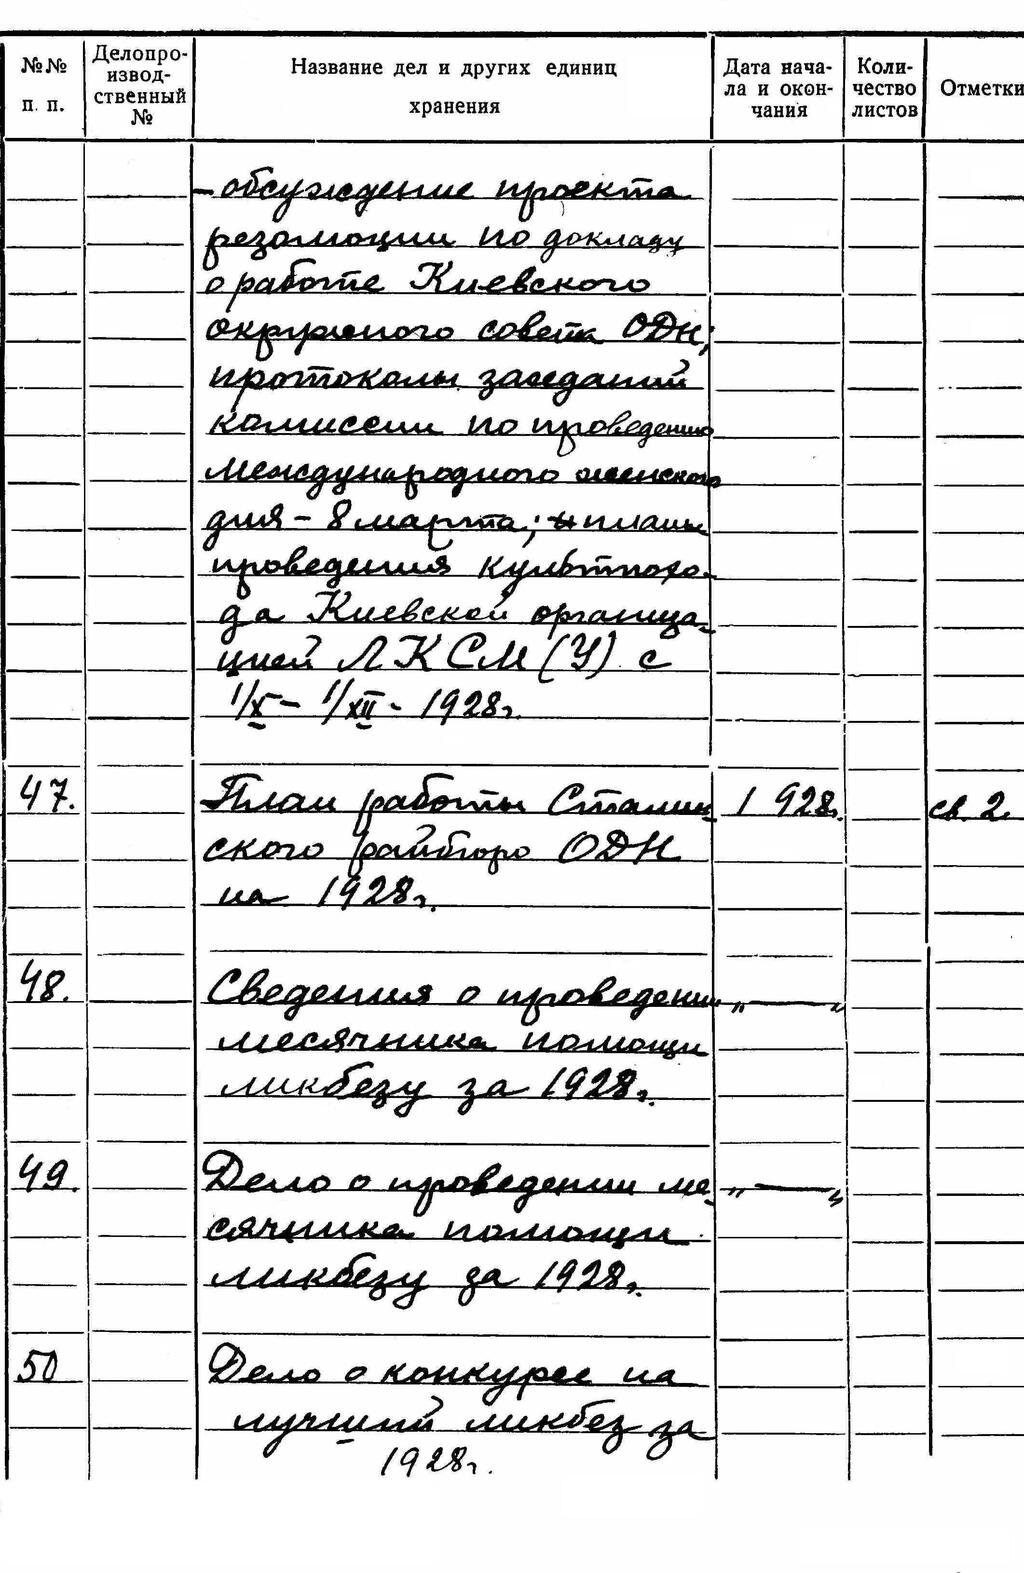 №№ п. п.
Делопроизвод-ственный №
Название дел и других единиц хранения
Дата нача-ла и окон-чания
Коли-чество листов
Отметки
- обсуждение проекта
резолюции по докладу
о работе Киевского
окружного совета ОДН;
протоколы заседаний
комиссии по проведению
Международного женского
дня - 8 марта; планы
проведения культпохо-
да Киевской организа-
цией ЛКСМ(У) с
1/X - 1/XII - 1928г.
47. План работы Сталин- 1928г. св. 2.
ского райбюро ОДН
на 1928г.
48. Сведения о проведении „—„
месячника помощи
ликбезу за 1928г.
49. Дело о проведении ме- „—„
сячника помощи
ликбезу за 1928г.
50 Дело о конкурсе на
лучший ликбез за
1928г.